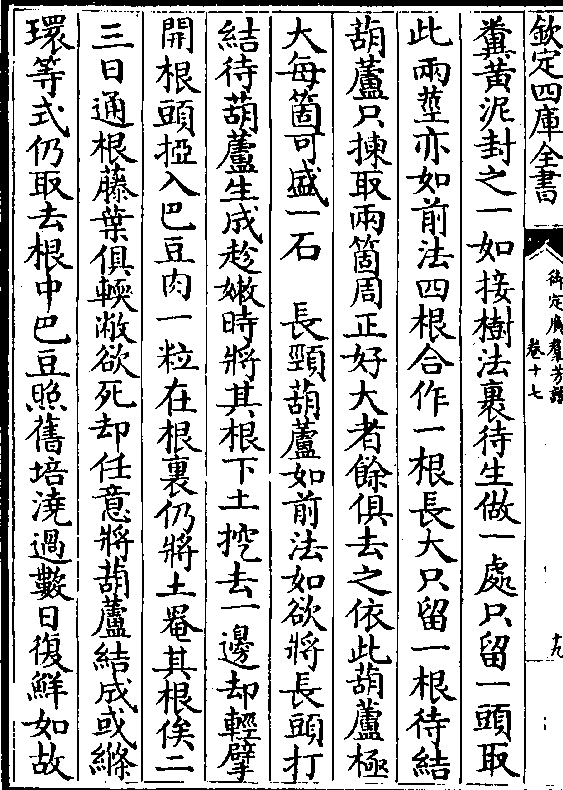 欽定四庫全書
御定廣羣芳譜
卷十七
十九
糞黄泥封之一如接樹法裹待生做一處只留一頭取
此兩莖亦如前法四根合作一根長大只留一根待結
葫蘆只揀取兩箇周正好大者餘俱去之依此葫蘆極
大每箇可盛一石　長頸葫蘆如前法如欲將長頭打
結待葫蘆生成趁嫩時將其根下土挖去一邊却輕擘
開根頭掗入巴豆肉一粒在根裏仍將土罨其根俟二
三日通根藤葉俱輭敝欲死却任意將葫蘆結成或縧
環等式仍取去根中巴豆照舊培澆過數日復鮮如故